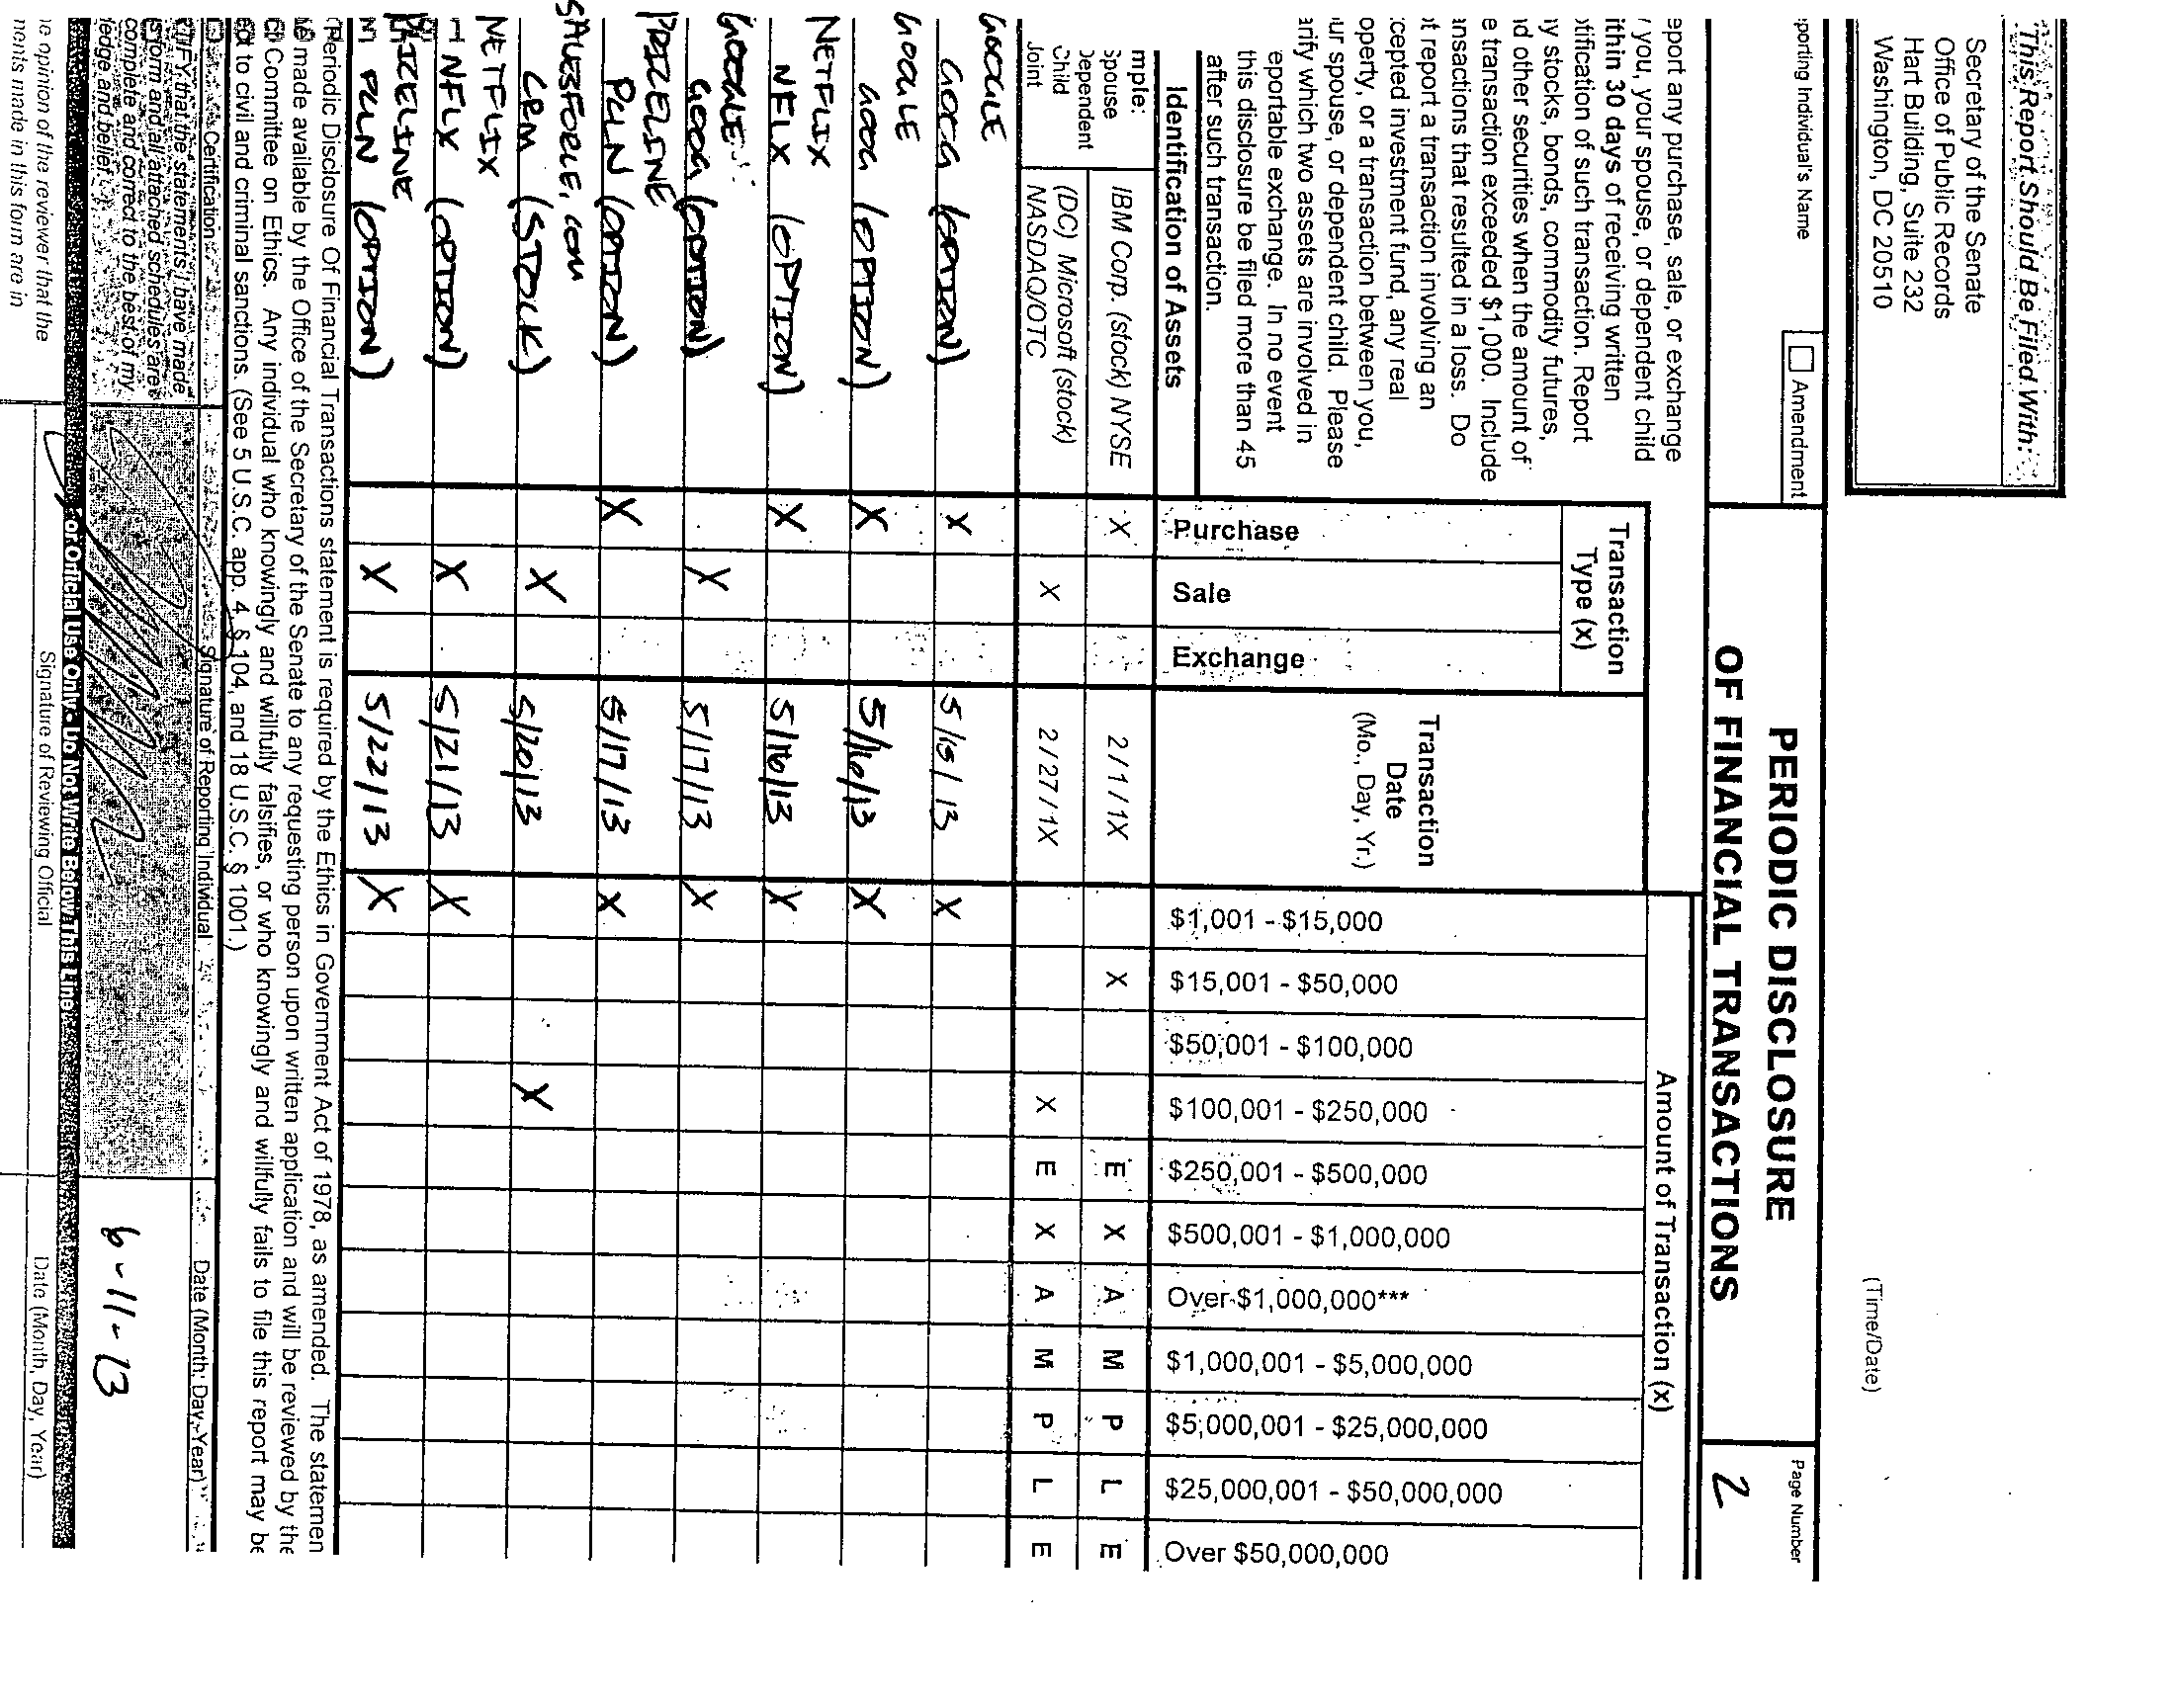 This Report Should Be Filed With:
Secretary of the Senate
Office of Public Records
Hart Building, Suite 232
Washington, DC 20510
(Time/Date)
porting Individual's Name
Amendment
PERIODIC DISCLOSURE
OF FINANCIAL TRANSACTIONS
Page Number
2
eport any purchase, sale, or exchange
you, your spouse, or dependent child
ithin 30 days of receiving written
otification of such transaction. Report
ny stocks, bonds, commodity futures,
nd other securities when the amount of
e transaction exceeded $1,000. Include
ansactions that resulted in a loss. Do
ot report a transaction involving an
cepted investment fund, any real
operty, or a transaction between you,
ur spouse, or dependent child. Please
arify which two assets are involved in
eportable exchange. In no event
this disclosure be filed more than 45
after such transaction.
Identification of Assets
Transaction
Type (x)
Purchase
Sale
Exchange
Transaction
Date
(Mo., Day, Yr.)
Amount of Transaction (x)
$1,001 - $15,000
$15,001 - $50,000
$50,001 - $100,000
$100,001 - $250,000
$250,001 - $500,000
$500,001 - $1,000,000
Over $1,000,000***
$1,000,001 - $5,000,000
$5,000,001 - $25,000,000
$25,000,001 - $50,000,000
Over $50,000,000
mple:
Spouse
Dependent
Child
Joint
IBM Corp. (stock) NYSE X 2/1/1X X E X A M P L E
(DC) Microsoft (stock)
NASDAQ/OTC X 2/27/1X X E X A M P L E
GOOGLE
GOOG (OPTION) X X
GOOGLE
GOOG (OPTION) X 5/16/13 X
NETFLIX
NFLX (OPTION) X 5/16/13 X
GOOGLE
GOOG (OPTION) X 5/17/13 X
PRICELINE
PCLN (OPTION) X 5/17/13 X
SALESFORCE.COM
CRM (STOCK) X 5/20/13 X
NETFLIX
NFLX (OPTION) X 5/21/13 X
PRICELINE
PCLN (OPTION) X 5/22/13 X
Periodic Disclosure Of Financial Transactions statement is required by the Ethics in Government Act of 1978, as amended. The statemen
made available by the Office of the Secretary of the Senate to any requesting person upon written application and will be reviewed by the
Committee on Ethics. Any individual who knowingly and willfully falsifies, or who knowingly and willfully fails to file this report may be
to civil and criminal sanctions. (See 5 U.S.C. app. 4, § 104, and 18 U.S.C. § 1001.)
Certification
Signature of Reporting Individual
Date (Month, Day, Year)
that the statements I have made
form and all attached schedules are
complete and correct to the best of my
ledge and belief.
6-11-13
For Official Use Only - Do Not Write Below This Line
opinion of the reviewer that the
ments made in this form are in
Signature of Reviewing Official
Date (Month, Day, Year)